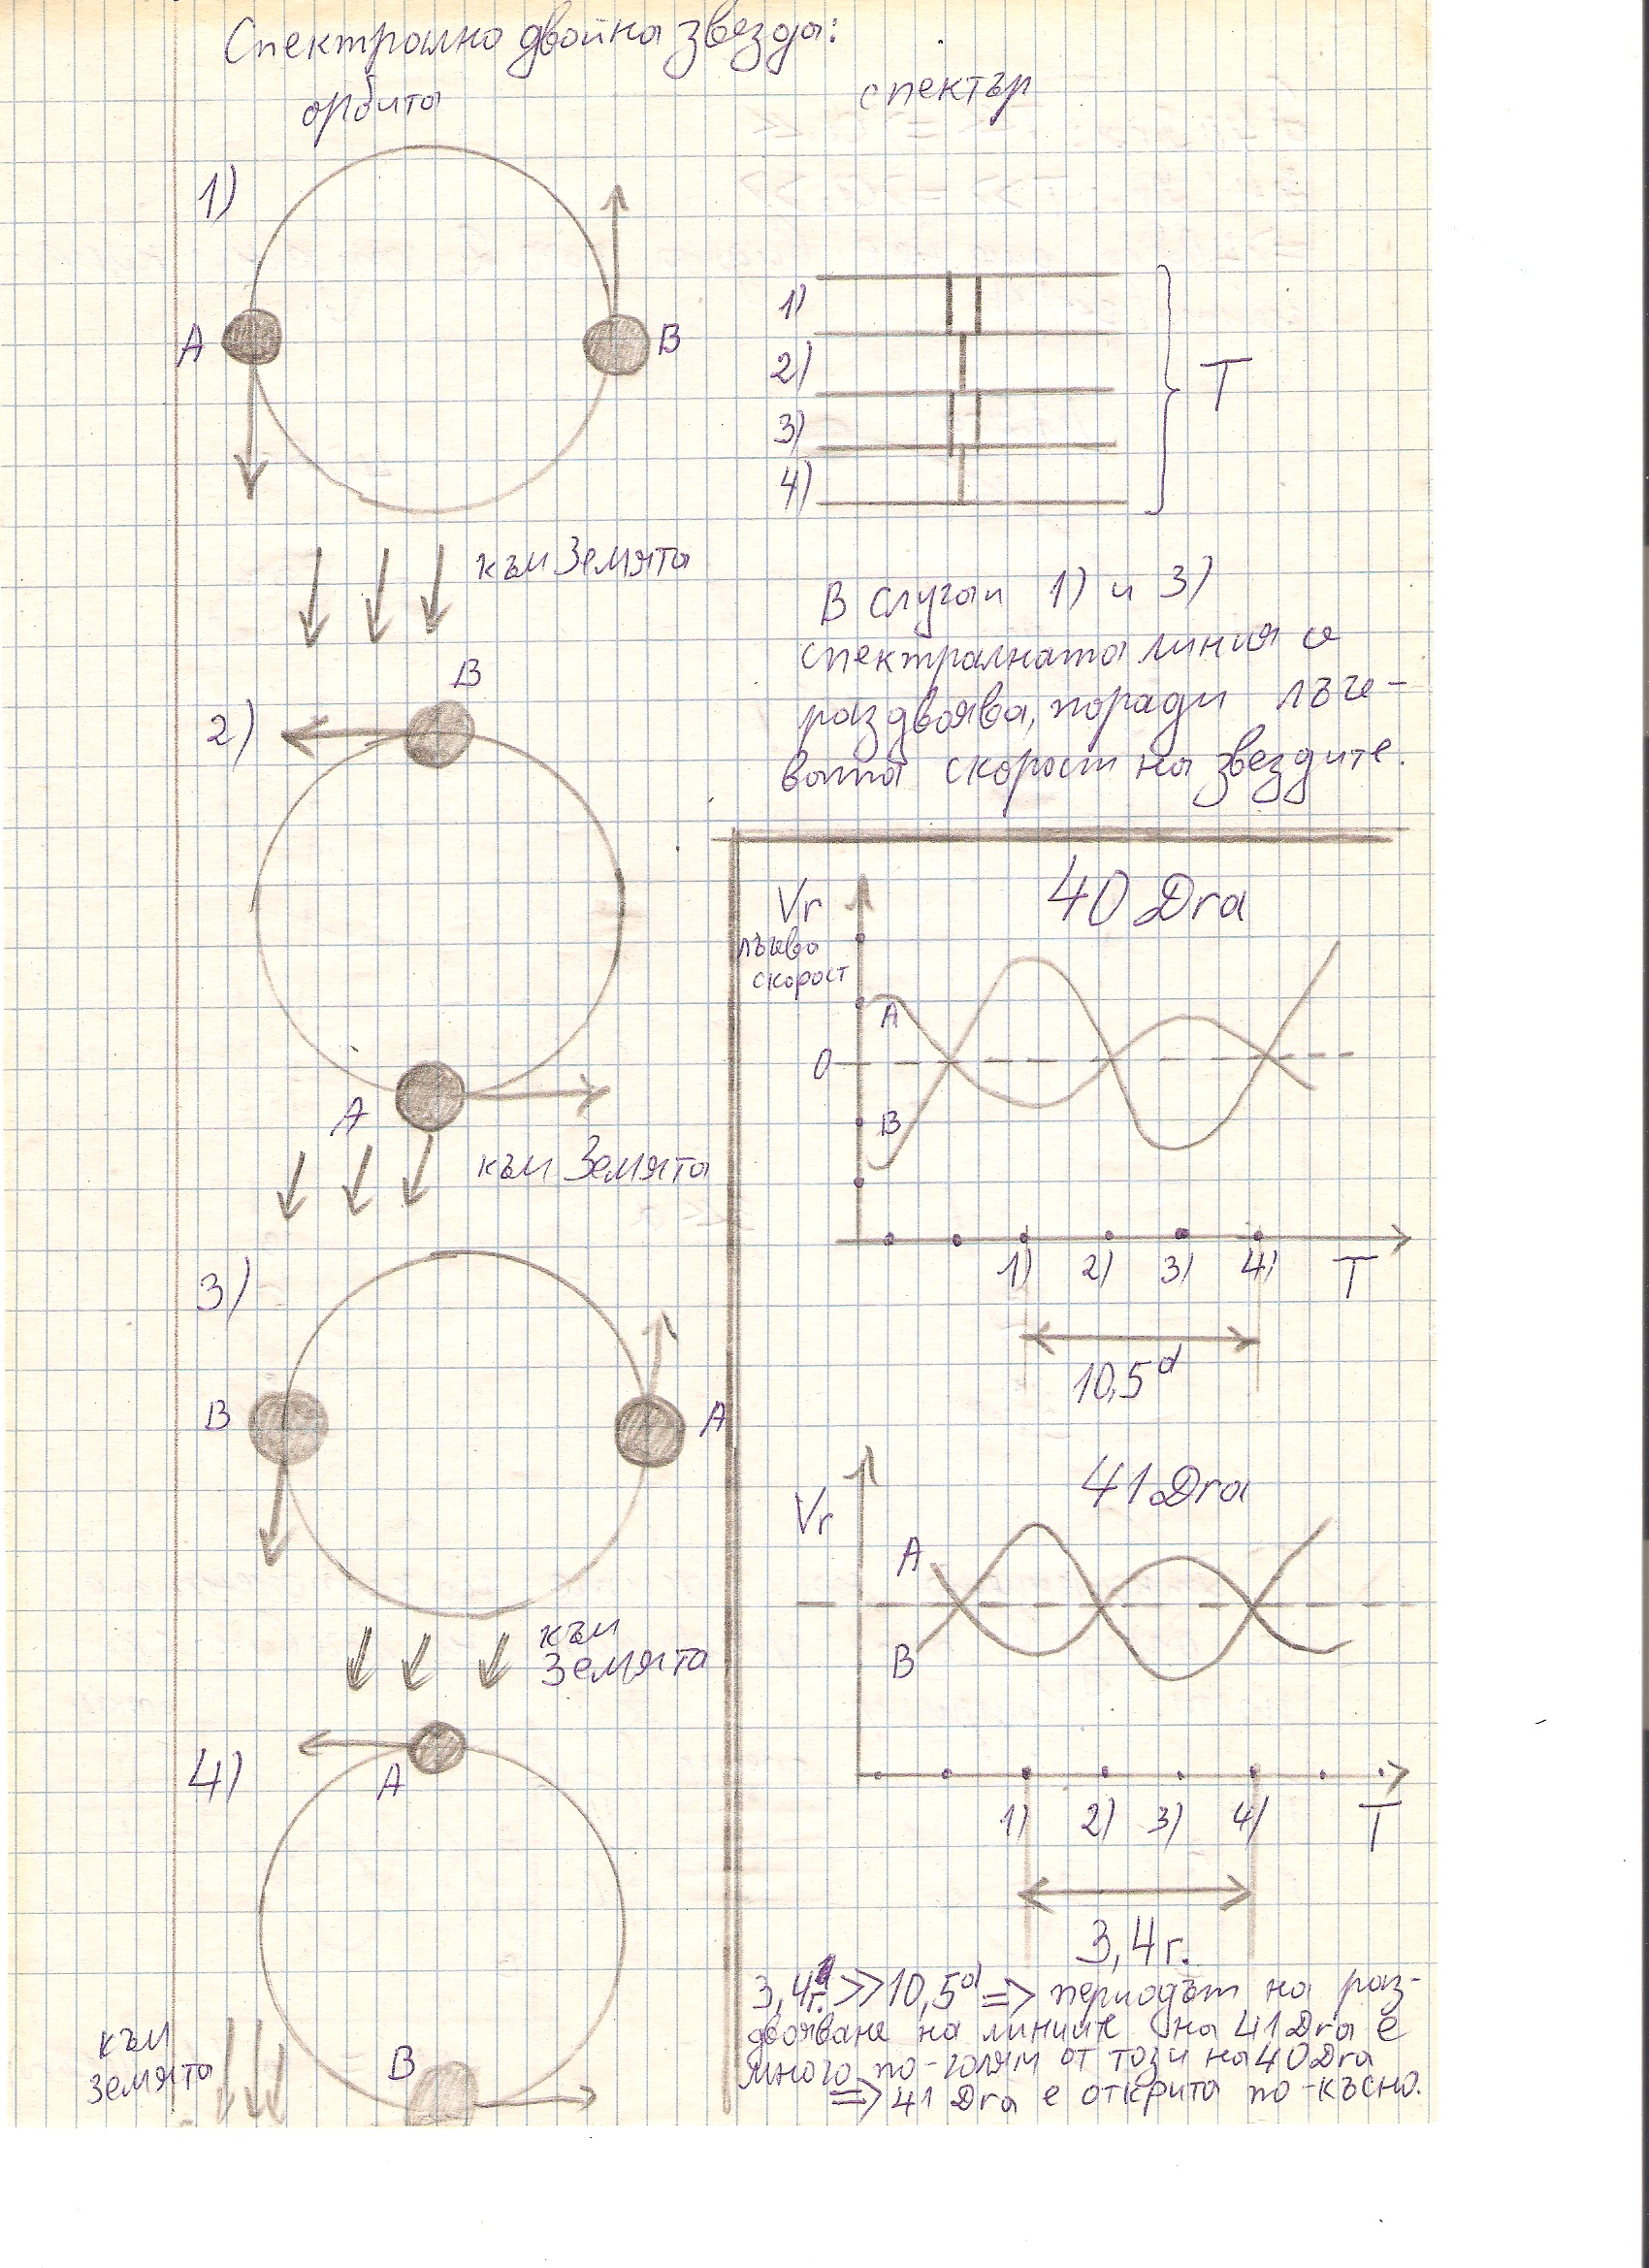 Спектрална двойна звезда:
орбита
спектър
1)
A
B
към Земята
2)
B
A
към Земята
3)
B
A
към
Земята
4)
A
B
към
Земята
1)
2)
3)
4)
T
В случаи 1) и 3)
спектралната линия се
раздвоява, поради лъче-
вата скорост на звездите.
40 Dra
Vr
лъчева
скорост
A
0
B
1) 2) 3) 4) T
10,5d
41 Dra
Vr
A
B
1) 2) 3) 4) T
3,4 г.
3,4г. >> 10,5d => периодът на раз-
двояване на линиите на 41 Dra е
много по-голям от този на 40 Dra
=> 41 Dra е открита по-късно.